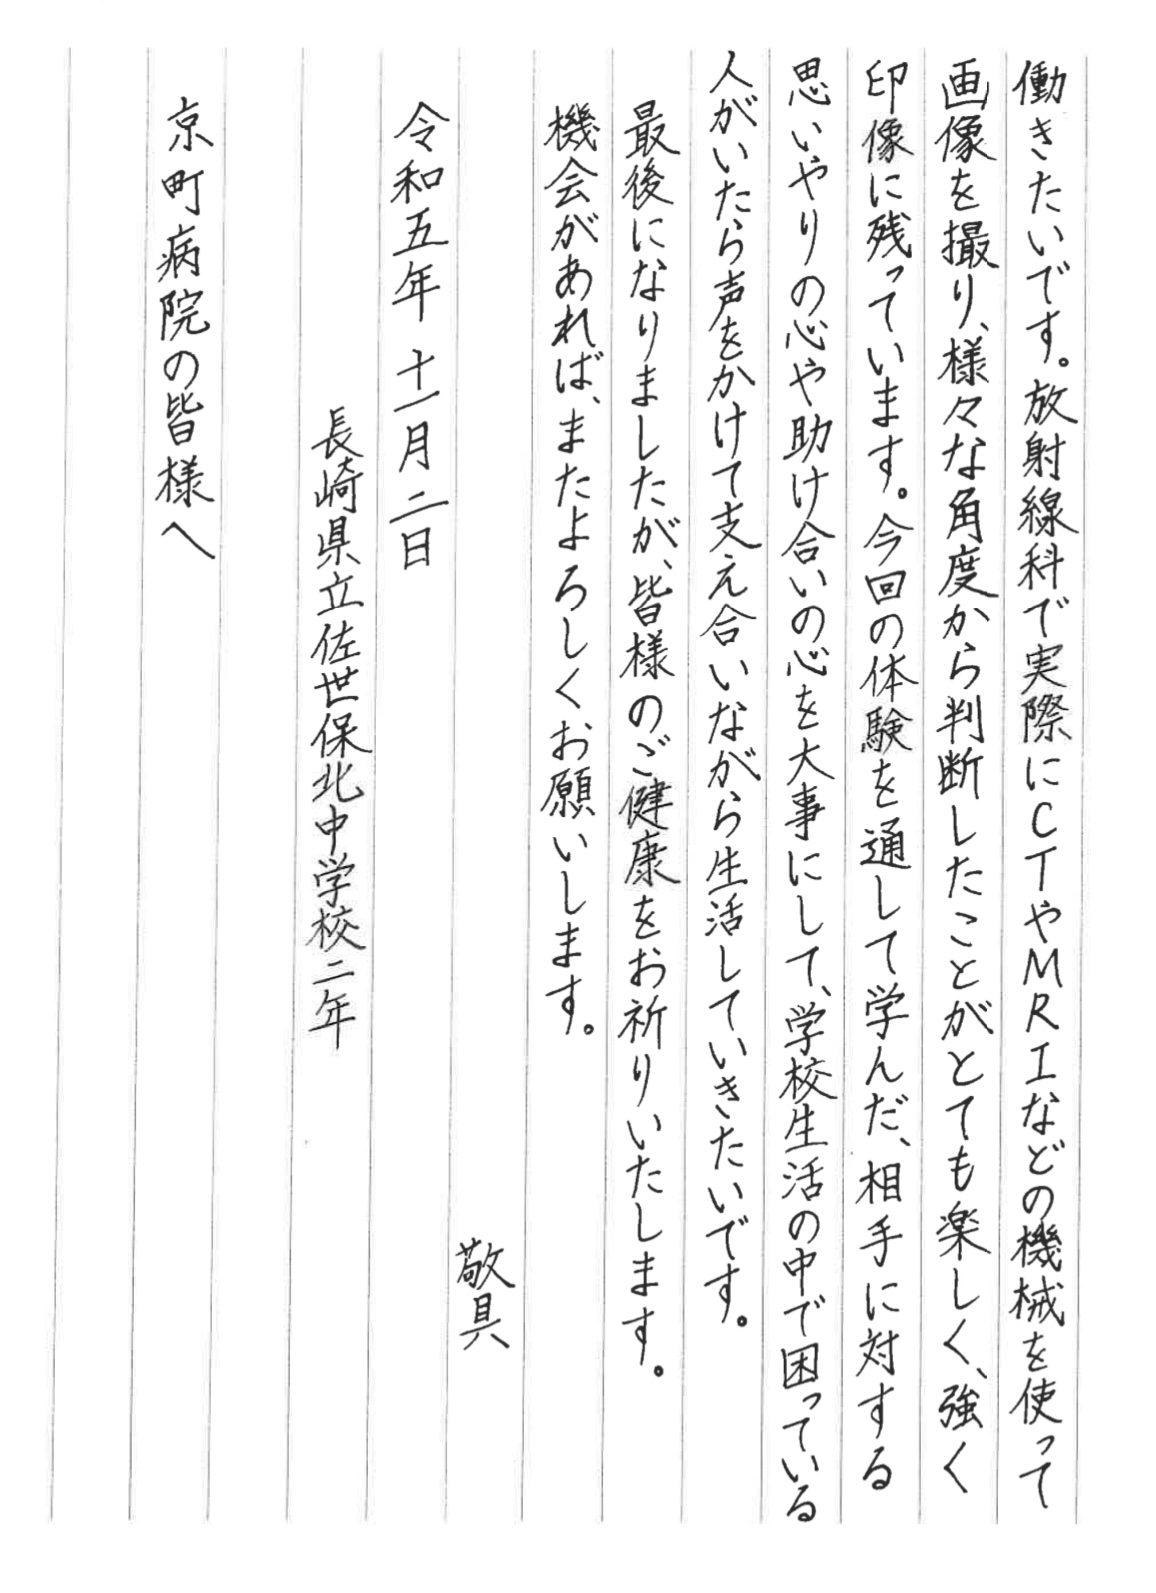 働きたいです。放射線科で実際にCTやMRIなどの機械を使って
画像を撮り、様々な角度から判断したことがとても楽しく、強く
印像に残っています。今回の体験を通して学んだ、相手に対する
思いやりの心や助け合いの心を大事にして、学校生活の中で困っている
人がいたら声をかけて支え合いながら生活していきたいです。
最後になりましたが、皆様のご健康をお祈りいたします。
機会があれば、またよろしくお願いします。
敬具
令和五年 十一月二日
長崎県立佐世保北中学校二年
京町病院の皆様へ